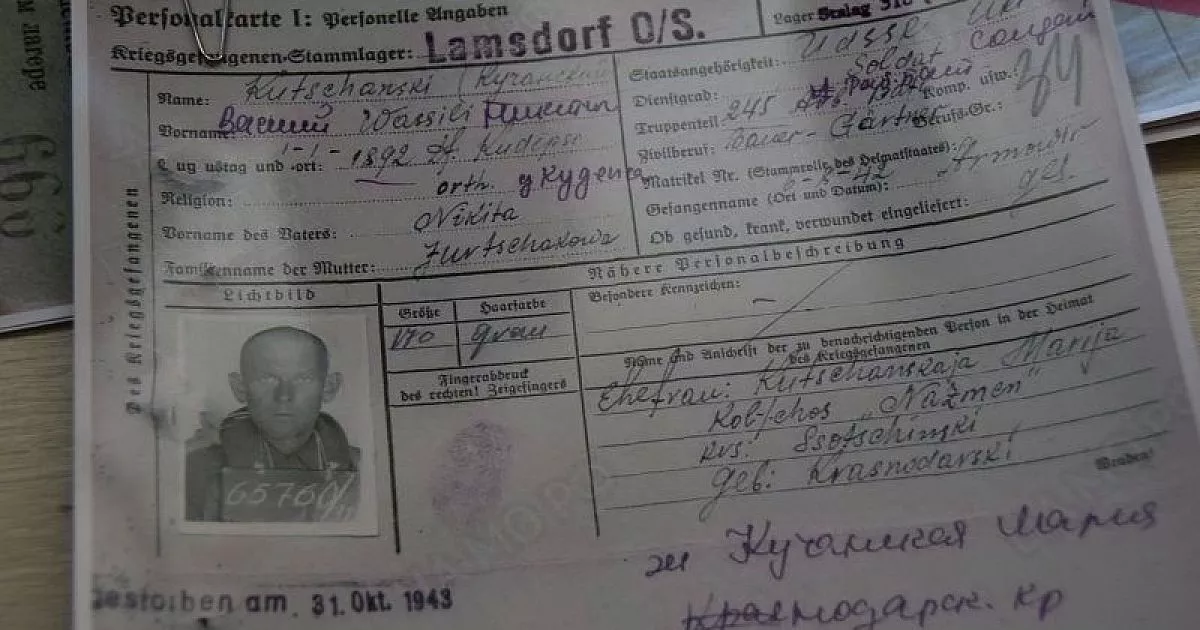 Personalkarte I: Personelle Angaben
Kriegsgefangenen-Stammlager: Lamsdorf O/S.
Lager Stalag 318
Des Kriegsgefangenen
Name: Kutschanski (Кучанский
Vorname: Василий Wassili
1-1-1892 Kudepse
orth. Кудепс
Religion:
Vorname des Vaters: Nikita
Familienname der Mutter:
Staatsangehörigkeit: UdSSR
Dienstgrad: Soldat солдат
Truppenteil: 245 Komp. usw.:
Zivilberuf: Bauer-Gärtner Berufs-Gr.:
Matrikel Nr. (Stammrolle des Heimatstaates):
Gefangennahme (Ort und Datum): Armawir
Ob gesund, krank, verwundet eingeliefert: ges.
Nähere Personalbeschreibung
Lichtbild
Größe Haarfarbe
170 grau
Fingerabdruck
des rechten! Zeigefingers
Besondere Kennzeichen: —
Name und Anschrift der zu benachrichtigenden Person in der Heimat
des Kriegsgefangenen
Ehefrau: Kutschanskaja Marija
Kolchos „Nazmen"
Ssotschinski
geb: Krasnodarski
Wenden!
65760
Gestorben am. 31. Okt. 1943
Кучанская Мария
Краснодарск. кр
лагере